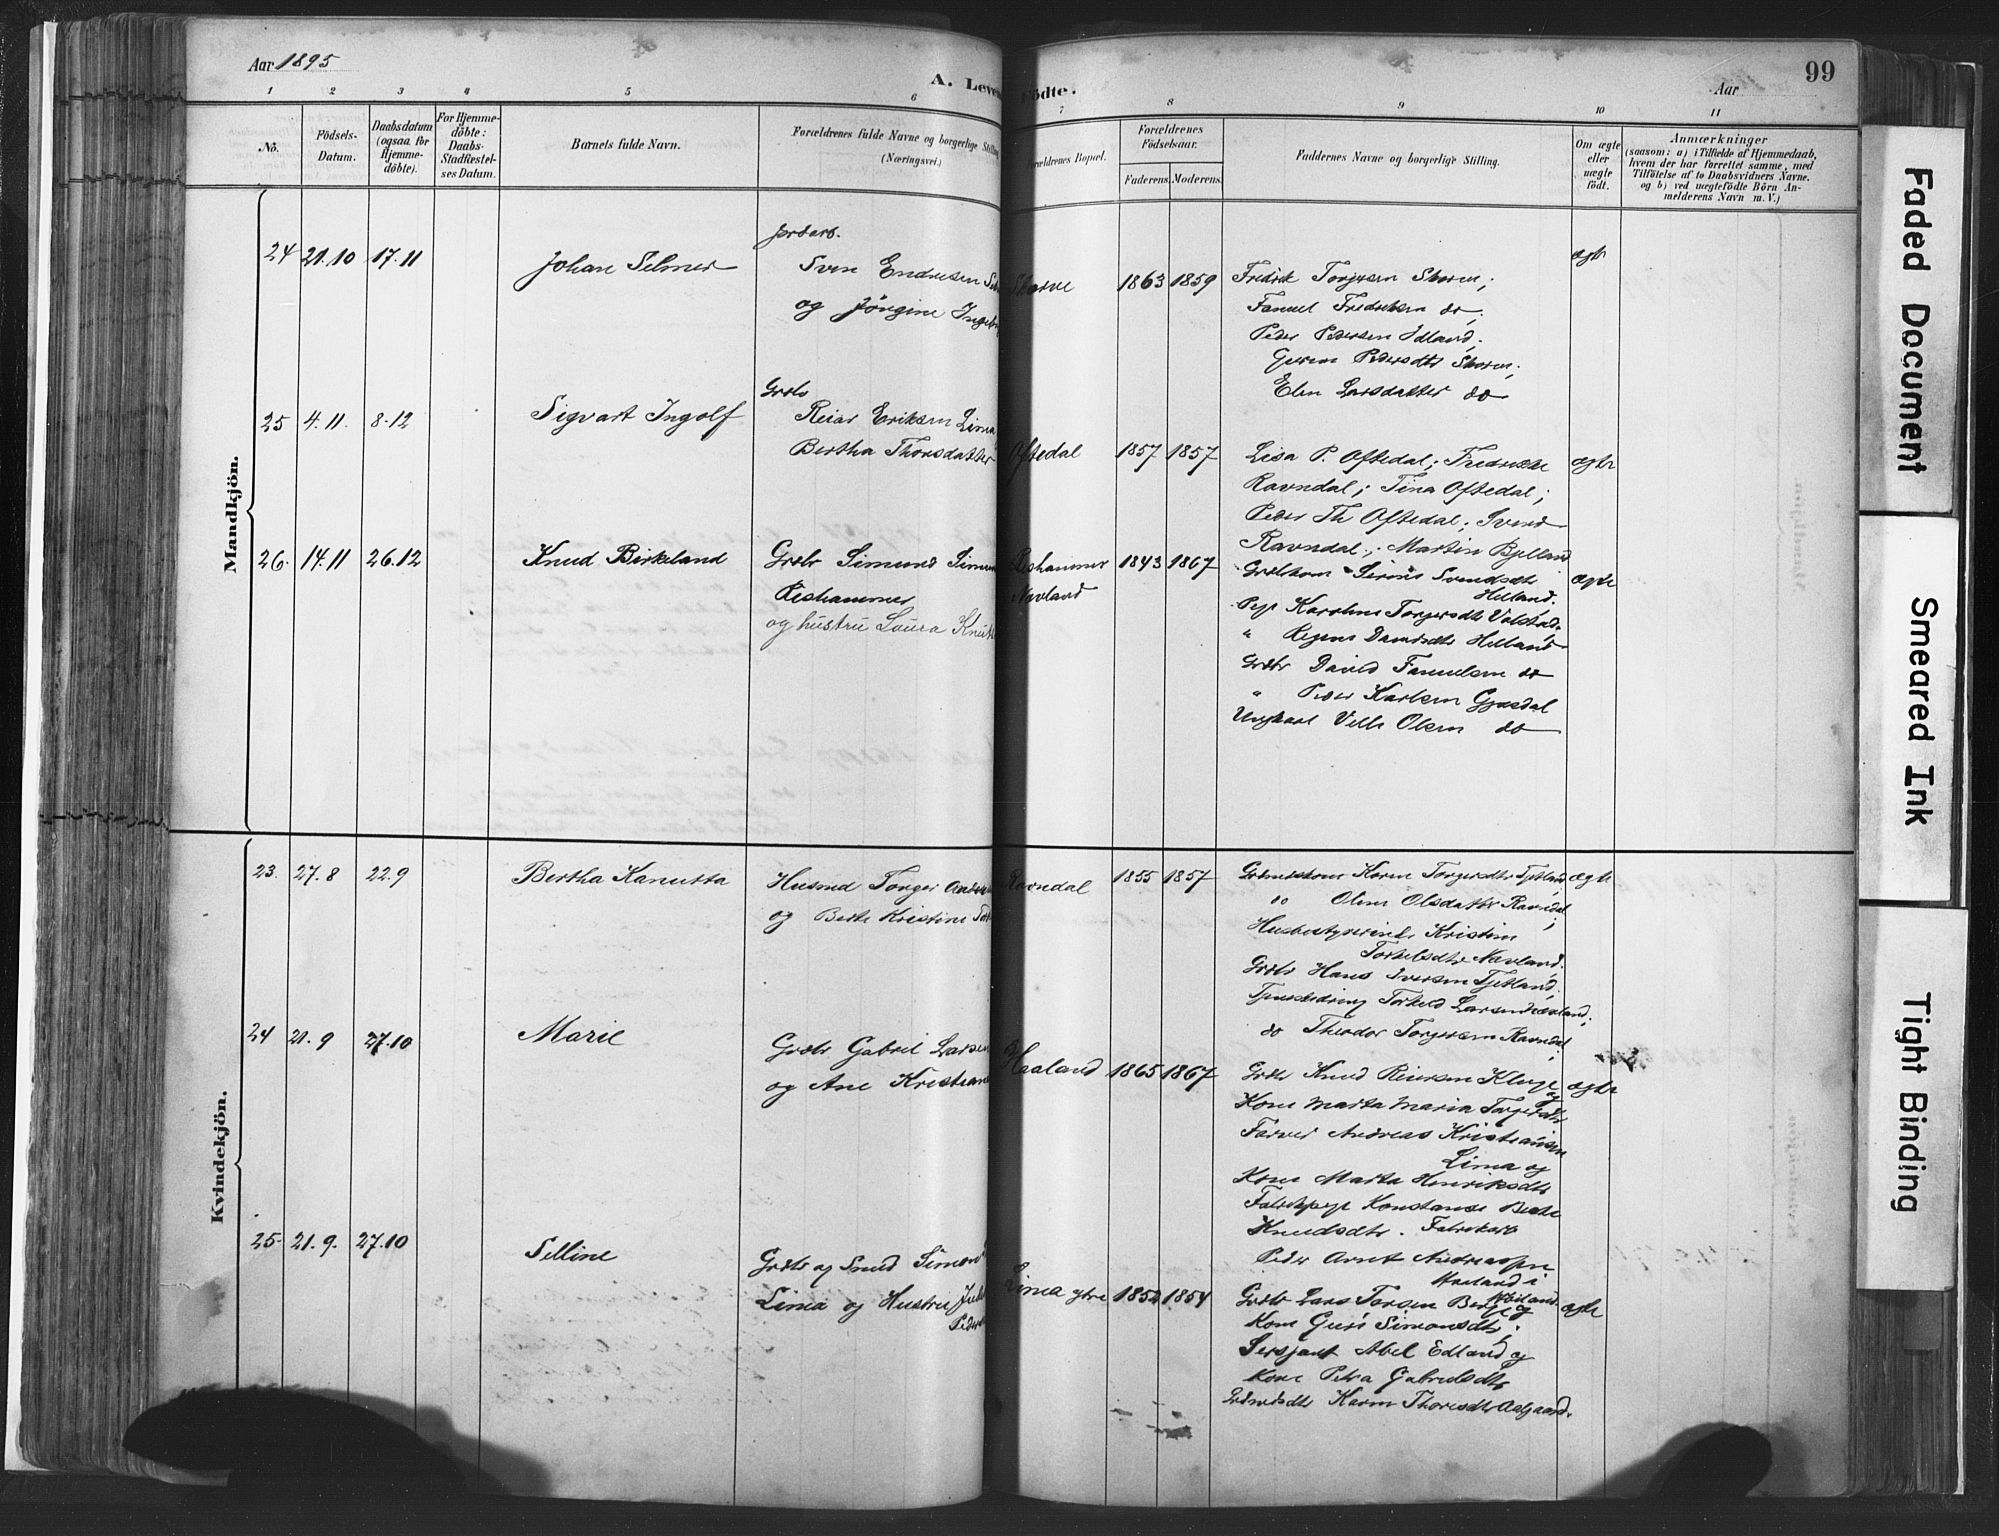 Aar 1895
A. Levende Födte.
99
Aar
1 2 3 4 5 6 7 8 9 10 11
No.
Födsels-Datum.
Daabsdatum (ogsaa for Hjemme-döbte).
For Hjemme-döbte: Daabs-Stadfæstel-ses Datum.
Barnets fulde Navn.
Forældrenes fulde Navne og borgerlige Stilling (Næringsvei.)
Forældrenes Bopæl.
Forældrenes Födselsaar.
Faderens. Moderens.
Faddernes Navne og borgerlige Stilling.
Om ægte eller uægte födt.
Anmærkninger
(saasom: a) i Tilfælde af Hjemmedaab, hvem der har forrettet samme, med Tilföielse af to Daabsvidners Navne. og b) ved uægtefödte Börn An-melderens Navn m. V.)
Mandkjön.
24 21.10 17.11 Johan Selmer
Jordarb.
Sven Endresen
og Jörgine
Skorve 1863 1859
Fredrik Torgersen Skorve;
Fanuel Fredriksen do;
Peder Pedersen Edland;
Pedersdtr Skorve;
Elen Larsdatter do
ægte
25 4.11. 8.12 Sigvart Ingolf
Grdbr
Reiar Eriksen Lima
Bertha Thorsdatter
Oftedal 1857 1857
Lisa P. Oftedal; Fredrikke
Ravndal; Tina Oftedal;
Peder Th Oftedal; Sverd
Ravndal; Martin Bjelland
ægte
26. 14.11 26.12 Knud Birkeland
Grdbr Simund
Rishammer
og hustru Laura
Rishammer
Nævland
1843 1867
Grdbrkone Sirene Svendsdtr
Helland.
Pige Karoline Torgersdtr Valstad
" Davidsdtr Helland
Grdbr David Fanuelsen do
" Peder Karlsen Gjesdal
Ungkarl Olsen do
ægte
Kvindekjön.
23. 27.8 22.9 Bertha Kanutta
Husmd Torger
og Berte Kristine
Ravndal 1855 1857
Karen Torgersdtr Tjetland
do Olene Olsdatter Ravndal;
Husbestyrerinde Kristine
Torkelsdtr Nævland.
Grdbr Hans Iversen Tjetland;
Tjenestedreng Torkild Larsen Nævland;
do Theodor Torgersen Ravndal;
ægte
24 21.9 27.10 Marie
Grdbr Gabriel Larsen
og Ane Kristiane
Haaland 1865 1867
Grdbr Knud Reiersen Kluge og
Kone Marta Maria Torgersdtr
Farver Andreas Kristiansen
Lima og
Kone Marta Henriksdtr
Fabrikpige Konstanse Berte
Knudsdtr. Fabrikarb
Peder Arnt Andreassen
Haaland i
Höiland.
ægte
25 21.9. 27.10 Selline
Grdbr og Smed Simon
Lima og Hustru
Lima ytre 1852 1854
Grdbr Lars Torsen Berge og
Kone Guri Simonsdtr;
Sersjant Abel Edland og
Kone Petra Gabrielsdtr
Karen Thoresdtr Aalgaard.
ægte
Faded Document
Smeared Ink
Tight Binding